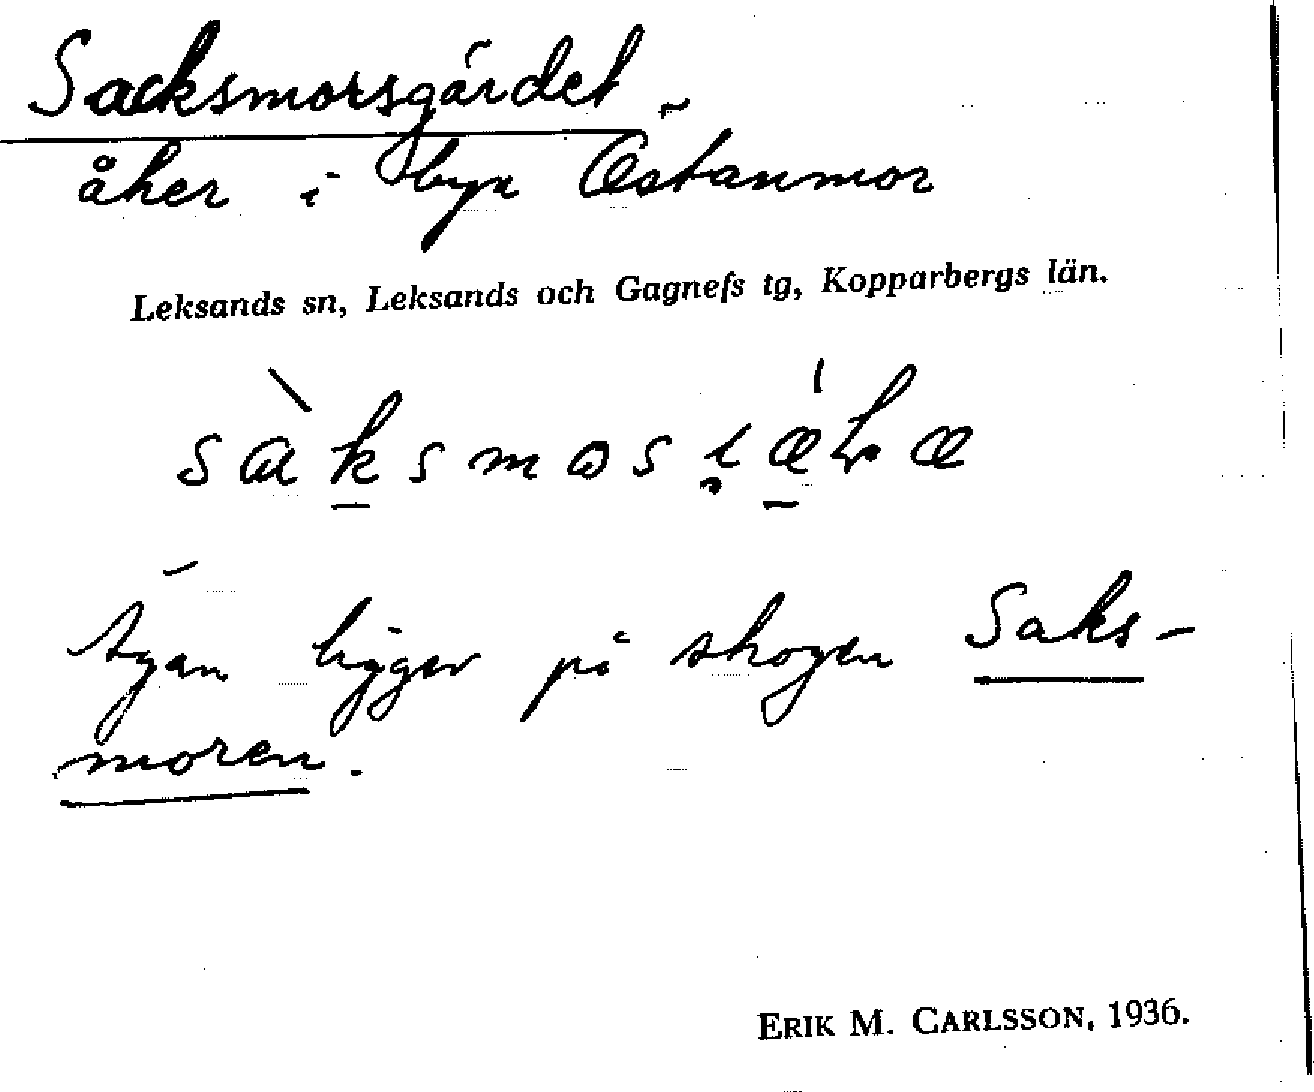 Sacksmorsgärdet
åker i byn Östanmor
Leksands sn, Leksands och Gagnefs tg, Kopparbergs län.
Ägan ligger på skogen Saks-
moren.
ERIK M. CARLSSON, 1936.